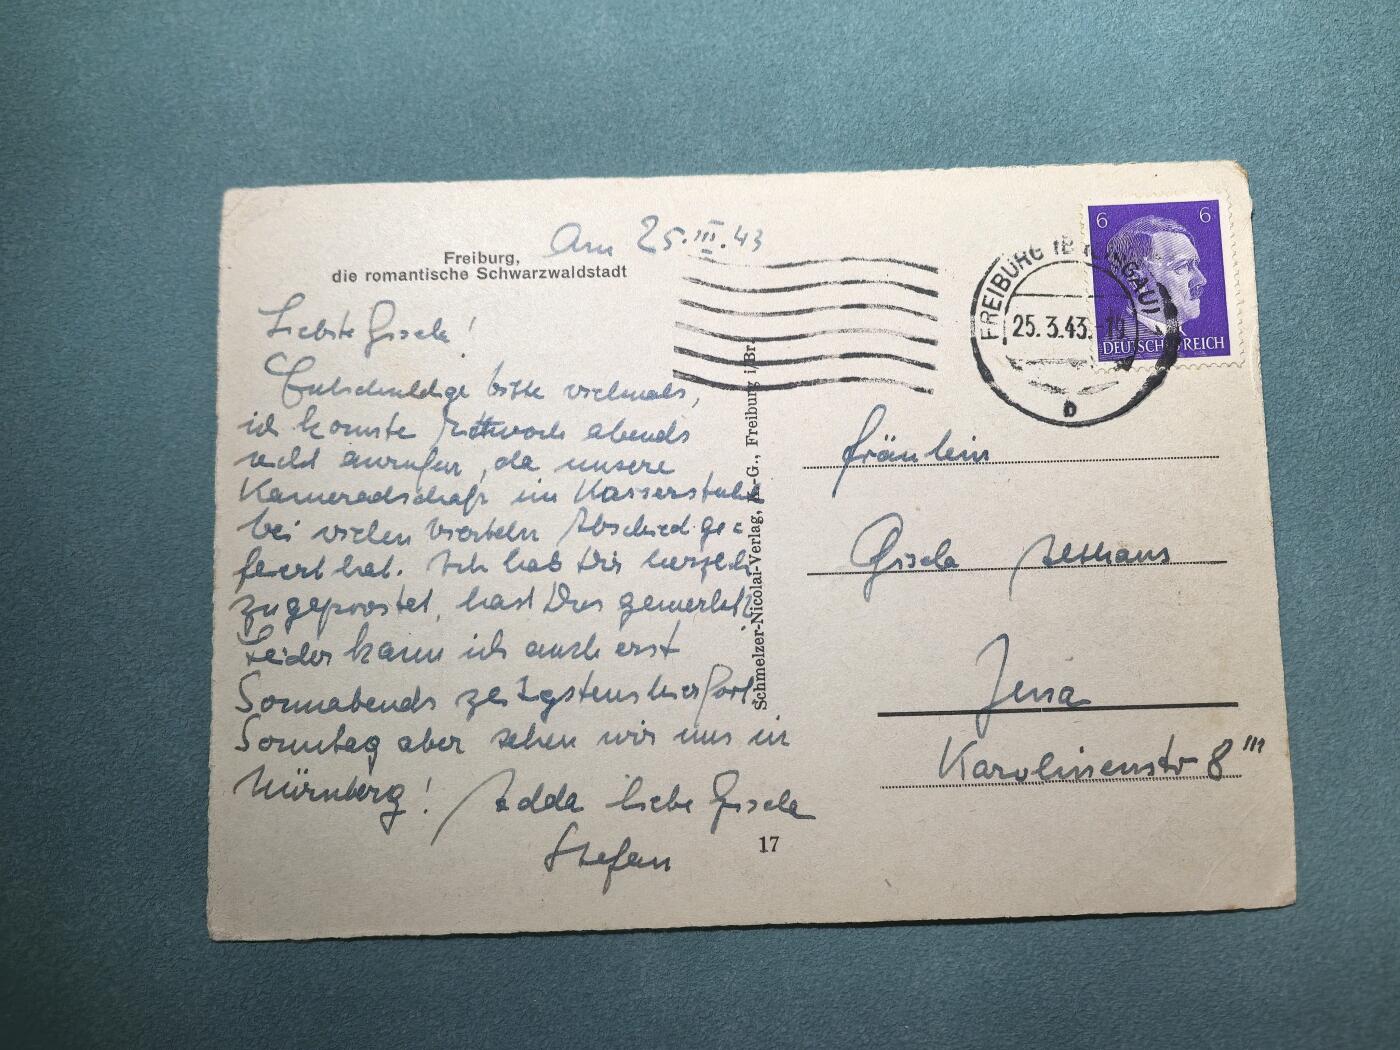 Am 25.III.43
Freiburg,
die romantische Schwarzwaldstadt
Liebste Gisela!
Entschuldige bitte vielmals,
ich konnte Mittwoch abends
nicht anrufen, da unsere
Kameradschaft im Kaiserstuhl
bei vielen Vierteln Abschied ge=
feiert hat. Ich hab Dir herzlich
zugeprostet, hast Du's gemerkt?
Leider kann ich auch erst
Sonnabends hier fort.
Sonntag aber sehen wir uns in
Nürnberg! Adda liebe Gisela
Stefan
Schmelzer-Nicolai-Verlag, K.-G., Freiburg i/Br.
17
FREIBURG (BREISGAU) 1
25.3.43.-19
b
6 6
DEUTSCHES REICH
Fräulein
Gisela Althaus
Jena
Karolinenstr 8 III